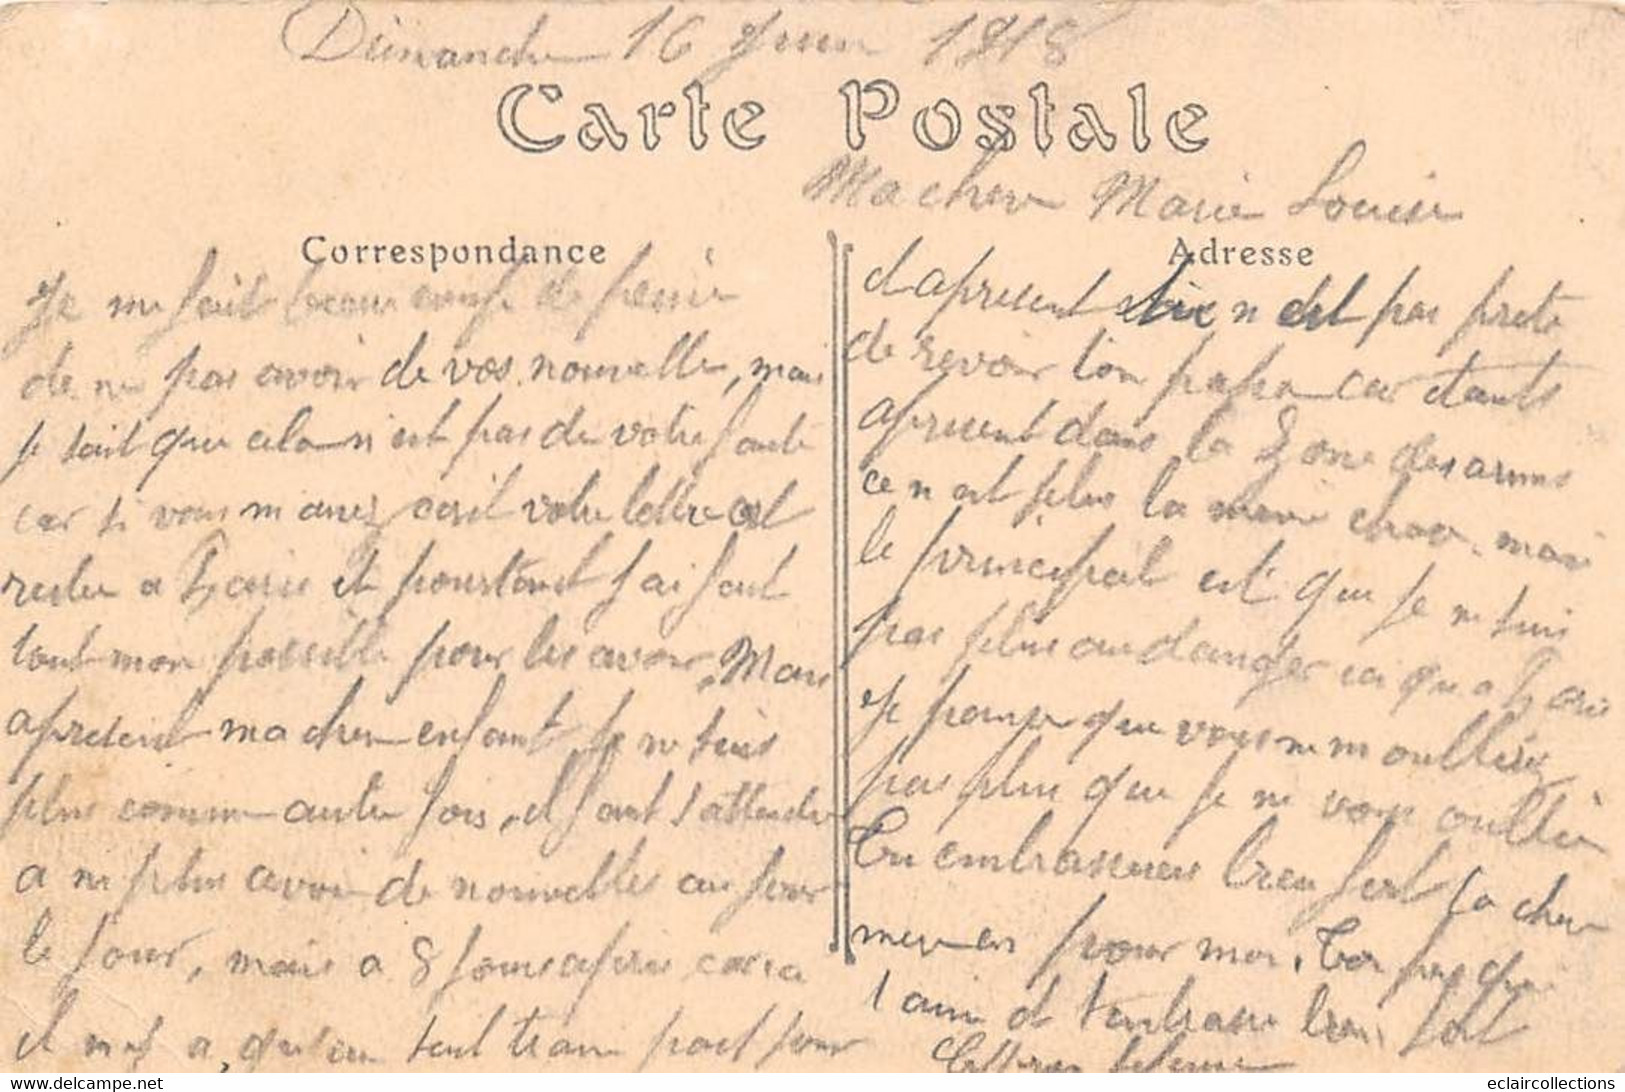 Dimanche 16 Juin 1918
Carte Postale
Ma cher Marie Louise
Correspondance
Je me fait beaucoup de peine
de ne pas avoir de vos nouvelle, mais
je sait que cela n est pas de votre faute
car si vous m avez écrit votre lettre est
rester a Paris et pourtant j ai fait
tout mon possible pour les avoir, Mais
apresent ma cher enfant je ne suis
plus comme autre fois, il faut s attendre
a ne plus avoir de nouvelles au jour
le jour, mais a 8 jours apres car ca
il ny a, qu un seul train part jour
Adresse
et apresent tu n est pas prete
de revoir ton papa car etants
apresent dans la Zone des armes
ce n est plus la meme chose, mais
le principal est que je ne suis
pas plus au danger ici qu a Paris
je pense que vous ne m oublliez
pas plus que je ne vous oubllie
Tu embrassera bien fort ta cher
mere pour moi. Ton papa qui
t aime et t embrasse bien fort
eclaircollections